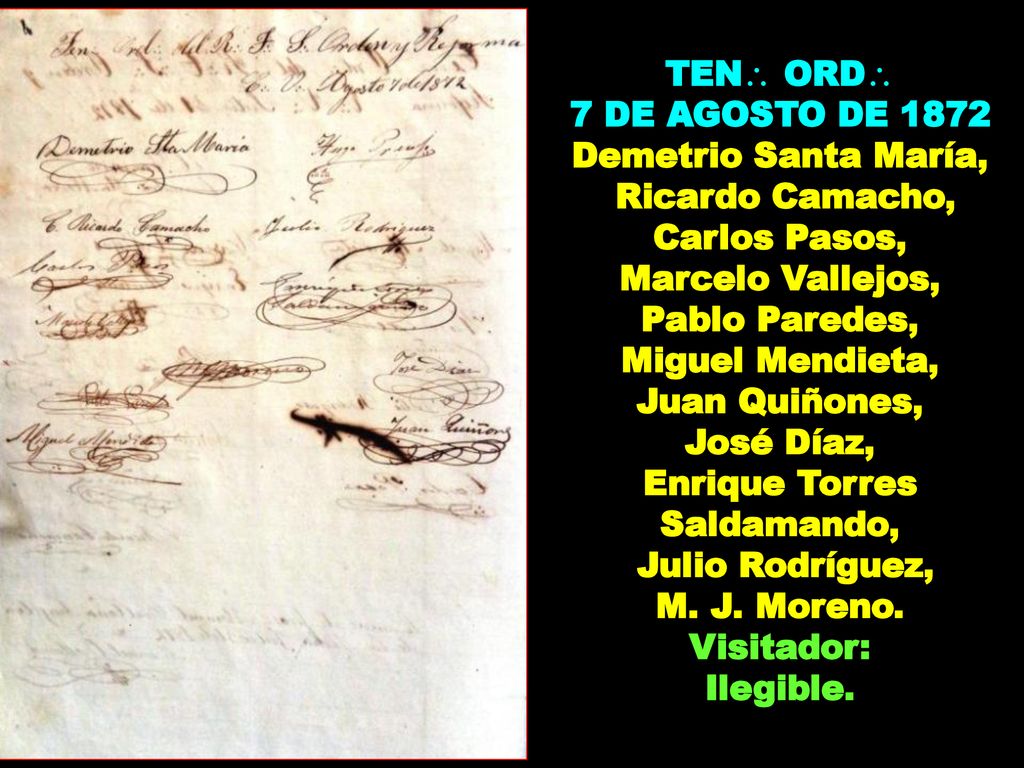 Ten∴ Ord∴ del R∴ F∴ S. Orden y Reforma
E. V. Agosto 7 de 1872
Demetrio Sta María
Hugo
C. Ricardo Camacho
Julio Rodriguez
Carlos Pasos
Enrique Torres
Saldamando
Moreno
José Diaz
Miguel Mendieta
Juan Quiñones
TEN∴ ORD∴
7 DE AGOSTO DE 1872
Demetrio Santa María,
Ricardo Camacho,
Carlos Pasos,
Marcelo Vallejos,
Pablo Paredes,
Miguel Mendieta,
Juan Quiñones,
José Díaz,
Enrique Torres
Saldamando,
Julio Rodríguez,
M. J. Moreno.
Visitador:
Ilegible.